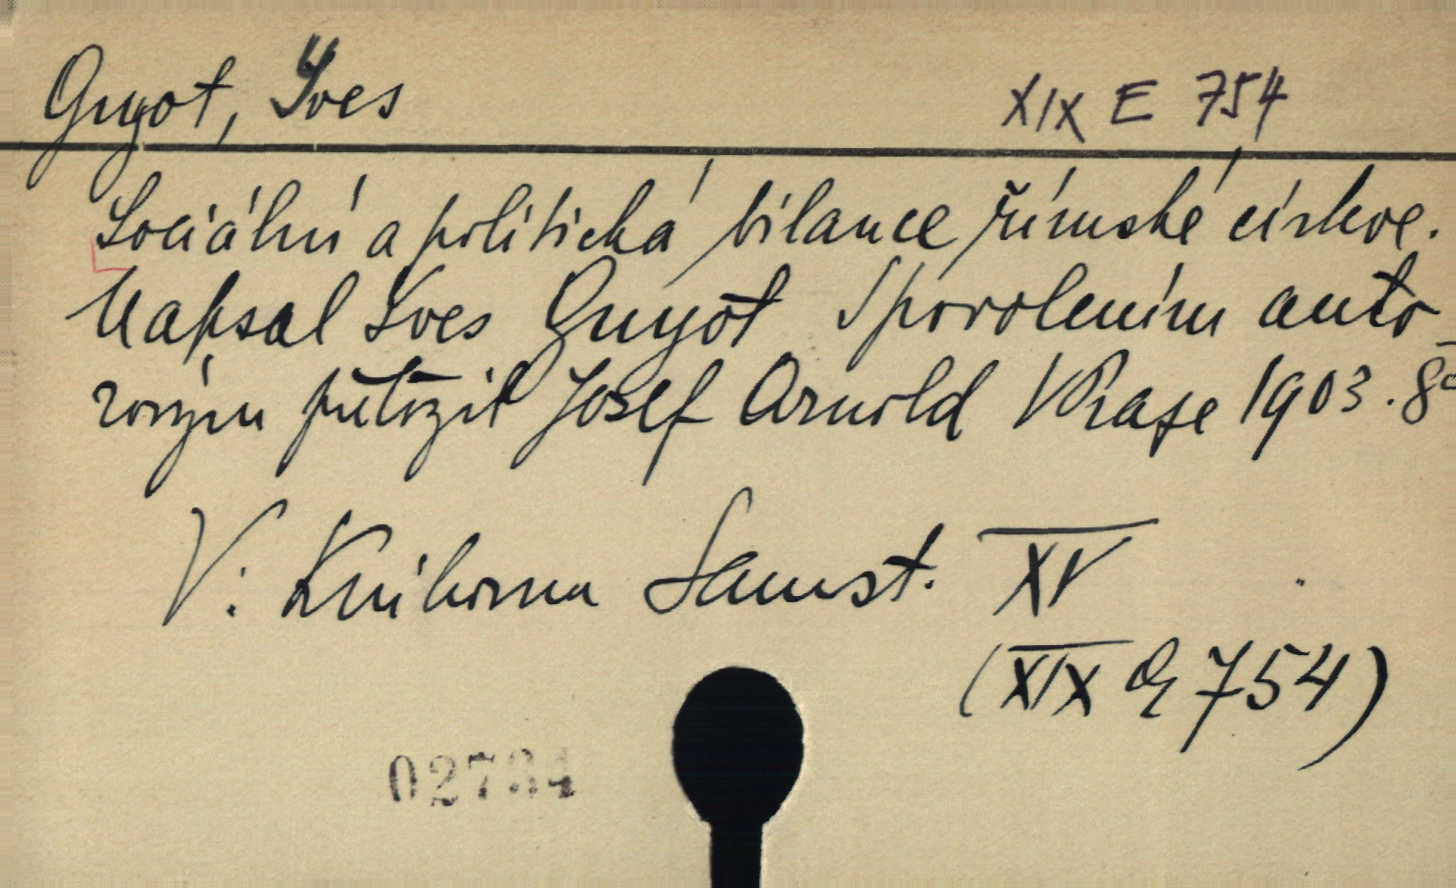 Guyot, Yves
XIX E 754
Sociální a politická bilance římské církve.
Napsal Yves Guyot S povolením auto-
rovým přeložil Josef Arnold V Praze 1903. 8°
V: Knihovna Samst. XV
(XIX E 754)